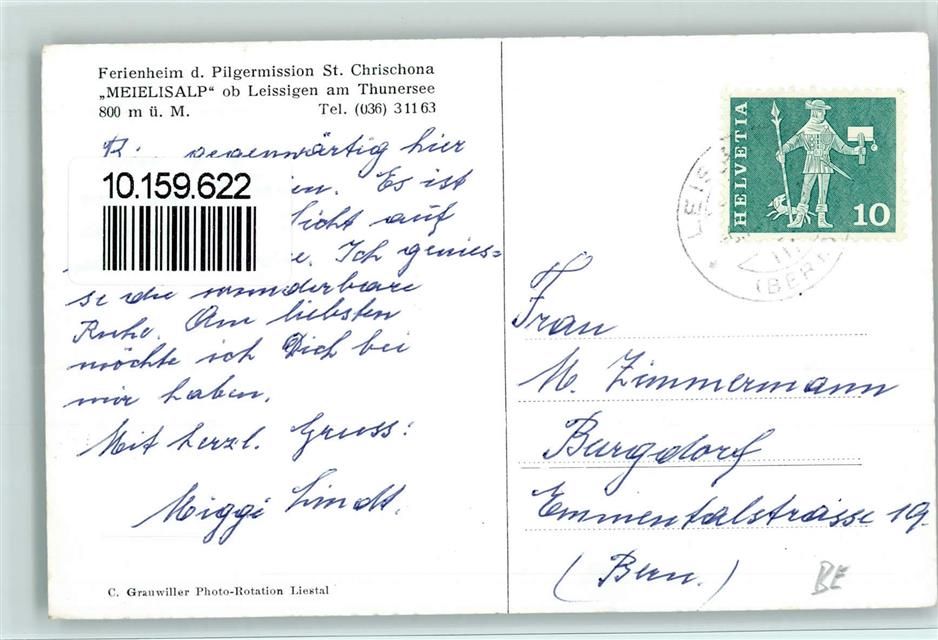 Ferienheim d. Pilgermission St. Chrischona
„MEIELISALP“ ob Leissigen am Thunersee
800 m ü. M. Tel. (036) 3 11 63
gegenwärtig hier
10.159.622
Es ist
auf
Ich genies=
se die wunderbare
Ruhe. Am liebsten
möchte ich Dich bei
mir haben.
Mit herzl. Gruss:
Miggi Lindt.
C. Grauwiller Photo-Rotation Liestal
HELVETIA
10
(BERN)
Frau
M. Zimmermann
Burgdorf
Emmentalstrasse 19.
(Bern.)
BE